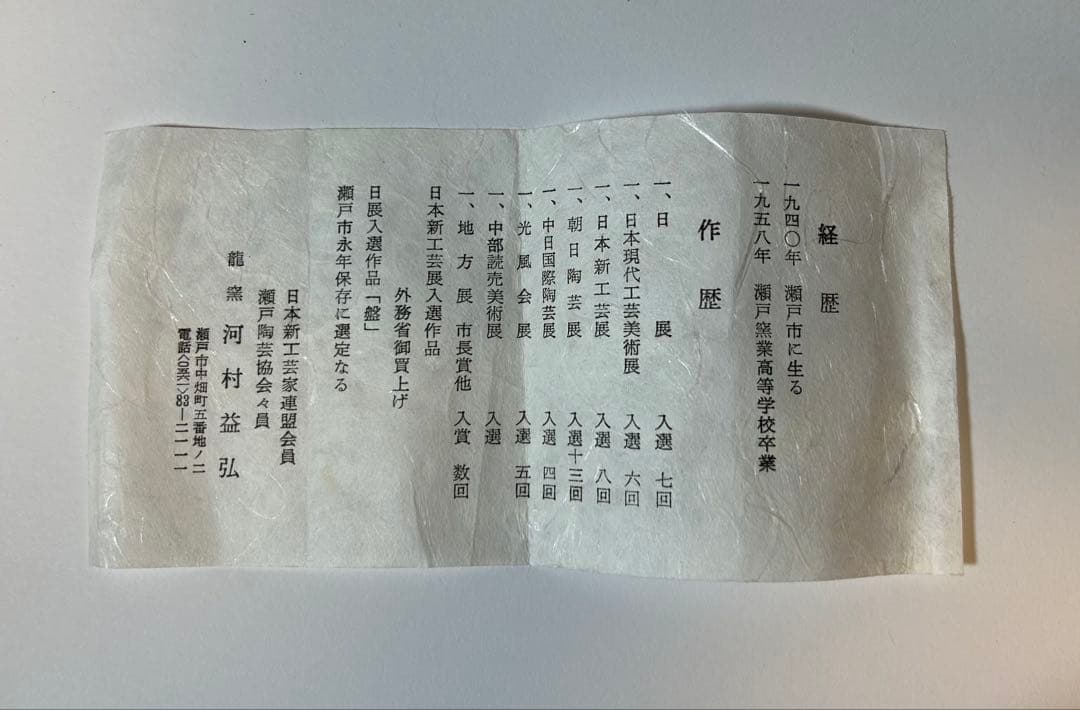 経歴
一九四〇年 瀬戸市に生る
一九五八年 瀬戸窯業高等学校卒業
作歴
一、日展 入選 七回
一、日本現代工芸美術展 入選 六回
一、日本新工芸展 入選 八回
一、朝日陶芸展 入選十三回
一、中日国際陶芸展 入選 四回
一、光風会展 入選 五回
一、中部読売美術展 入選
一、地方展 市長賞他 入賞 数回
日本新工芸展入選作品
外務省御買上げ
日展入選作品「盤」
瀬戸市永年保存に選定なる
日本新工芸家連盟会員
瀬戸陶芸協会々員
龍窯 河村益弘
瀬戸市中畑町五番地ノ二
電話〈〇五六一〉83―二一一一